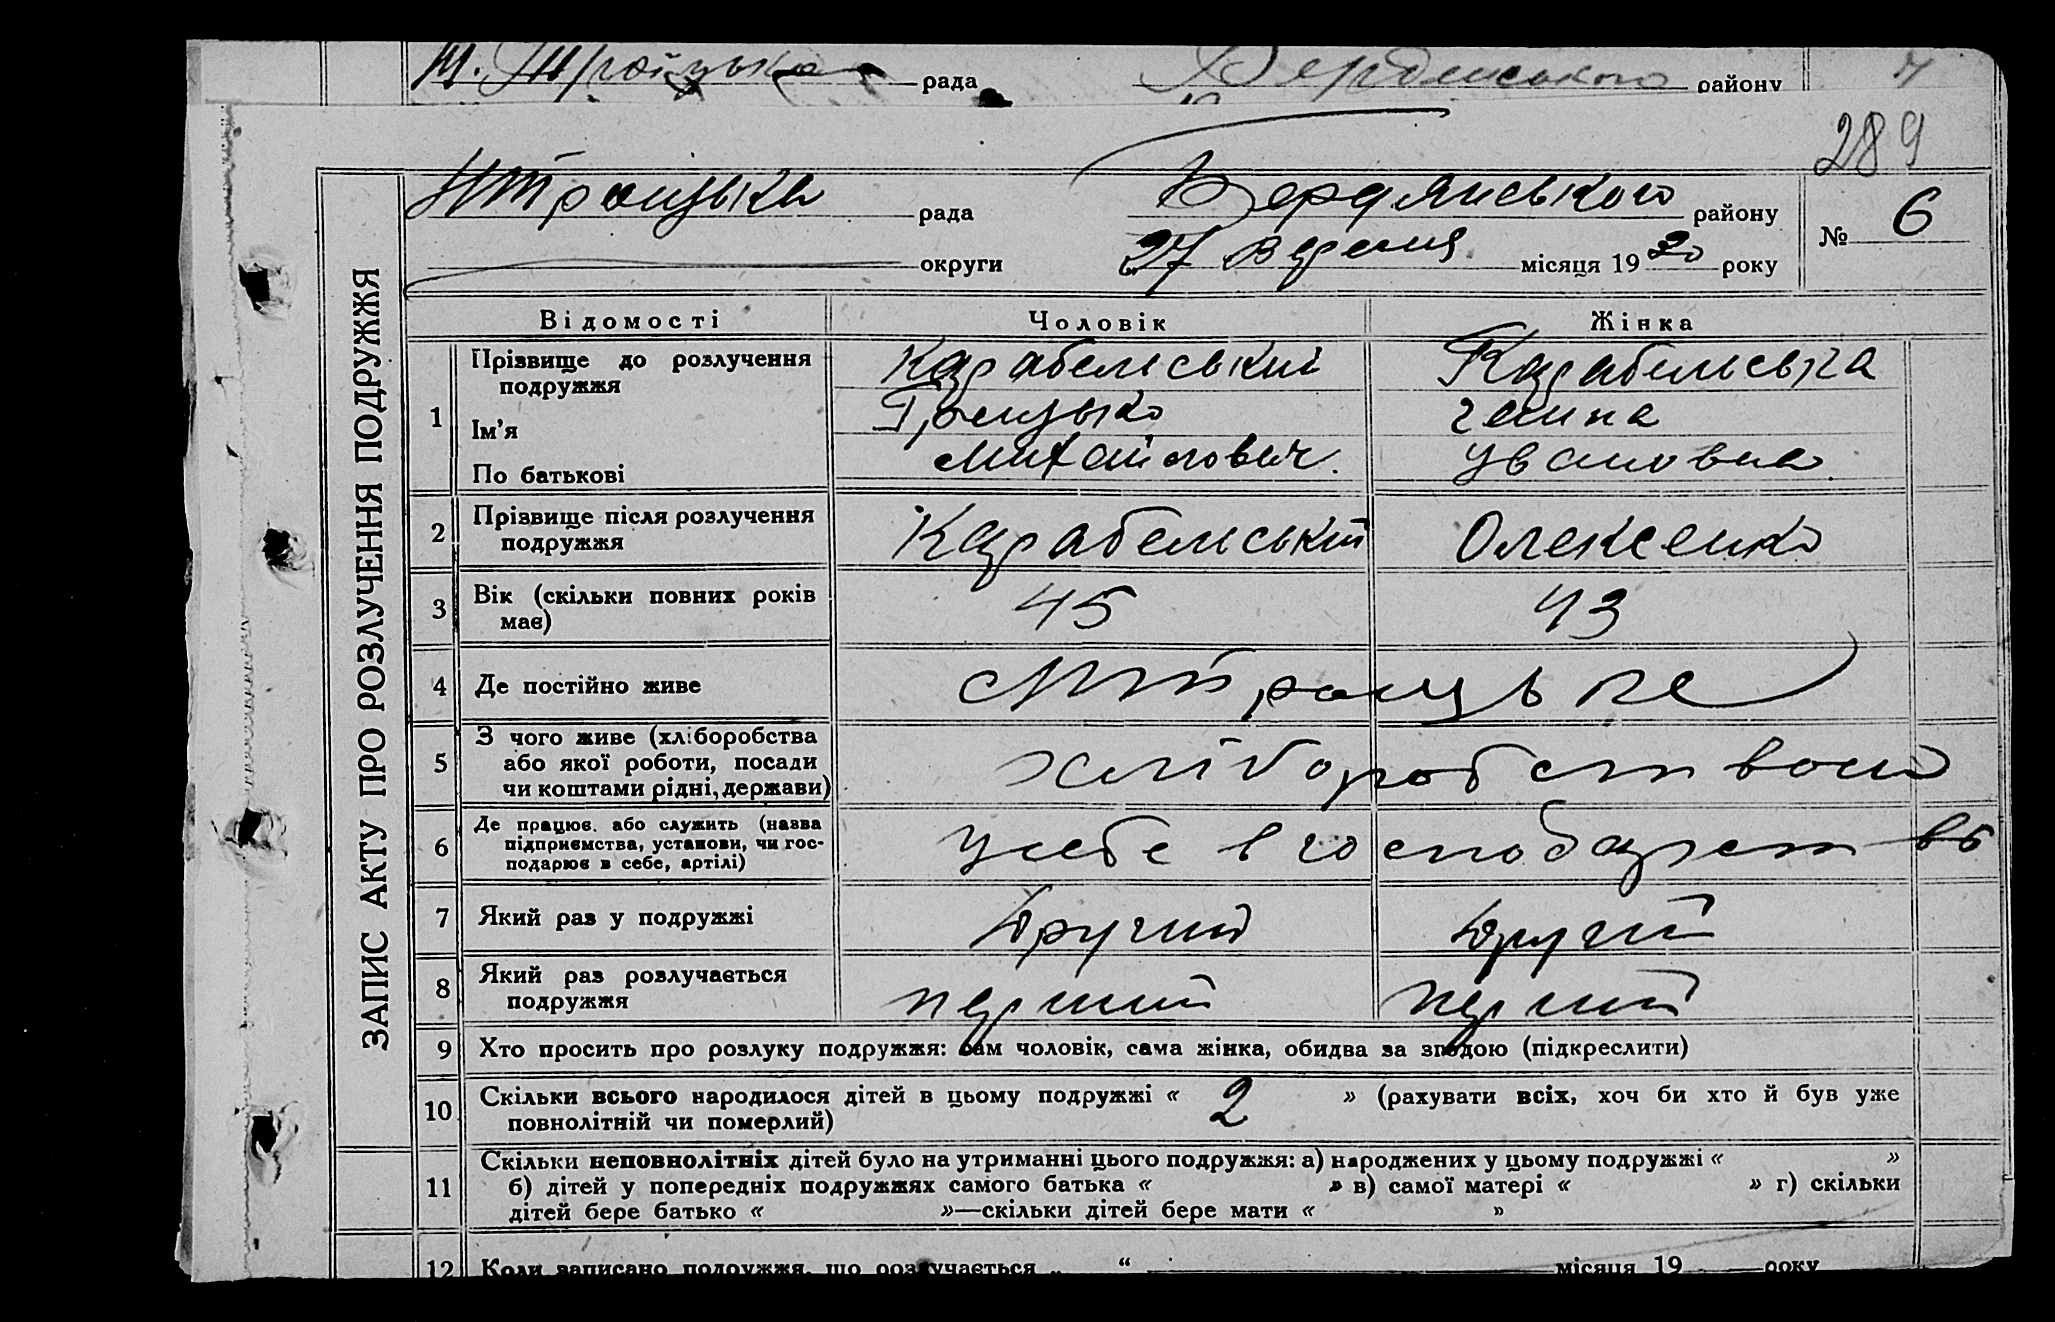 рада Бердянського району
289
рада Бердянського району № 6
округи 27 Вересня місяця 1930 року
ЗАПИС АКТУ ПРО РОЗЛУЧЕННЯ ПОДРУЖЖЯ
Відомості Чоловік Жінка
1 Прізвище до розлучення Карабельський Карабельська
подружжя
Ім'я Грицько Ганна
По батькові Михайлович Ивановна
2 Прізвище після розлучення Карабельский Олексенко
подружжя
3 Вік (скільки повних років 45 43
має)
4 Де постійно живе
5 З чого живе (хліборобства хліборобством
або якої роботи, посади
чи коштами рідні, держави)
6 Де працює або служить (назва у себе в господарстві
підприємства, установи, чи гос-
подарює в себе, артілі)
7 Який раз у подружжі Другий Другий
8 Який раз розлучається перший перший
подружжя
9 Хто просить про розлуку подружжя: сам чоловік, сама жінка, обидва за згодою (підкреслити)
10 Скільки всього народилося дітей в цьому подружжі « 2 » (рахувати всіх, хоч би хто й був уже
повнолітній чи померлий)
Скільки неповнолітніх дітей було на утриманні цього подружжя: а) народжених у цьому подружжі « »
11 б) дітей у попередніх подружжях самого батька « » в) самої матері « » г) скільки
дітей бере батько « »—скільки дітей бере мати « »
12 Коли записано подружжя, що розлучається „ “ місяця 19 року